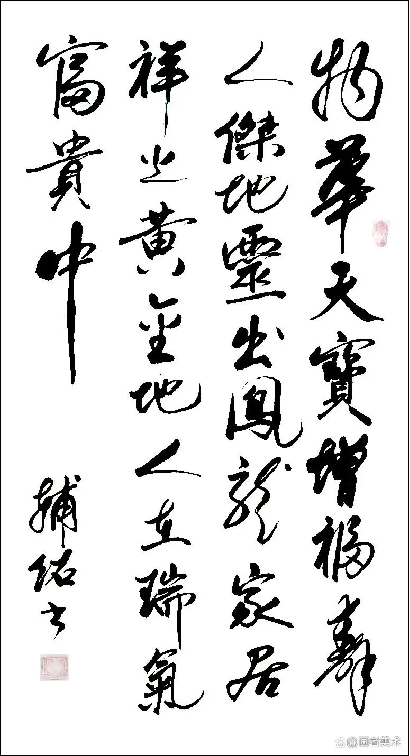 物華天寶增福壽
人傑地靈出鳳龍家居
祥光黃金地人在瑞氣
富貴中
輔紹書